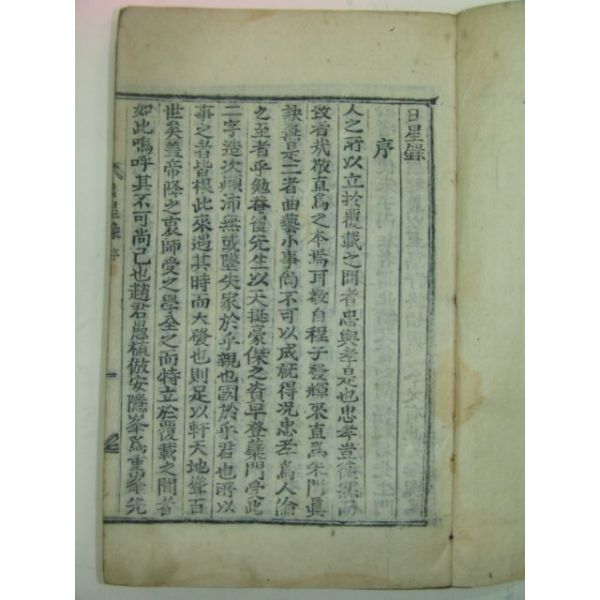 日星錄
序
人之所以立於覆載之間者忠與孝是也忠孝豈徒然而
致者哉敬直爲之本焉耳敬自程子發輝來直爲朱門眞
訣無是二者曲藝小事尚不可以成就得况忠孝爲人倫
之至者乎勉菴後先生以天挺豪傑之資早登蘗門受此
二字造次顚沛無或墜失家於乎親也國於乎君也所以
事之者皆根此來過其時而大發也則足以軒天地聳百
世矣蓋帝降之衷師受之學全之而特立於覆載之間者
如此嗚呼其不可尚已也趙君愚植倣安隱峯爲重峯先
日星錄 序